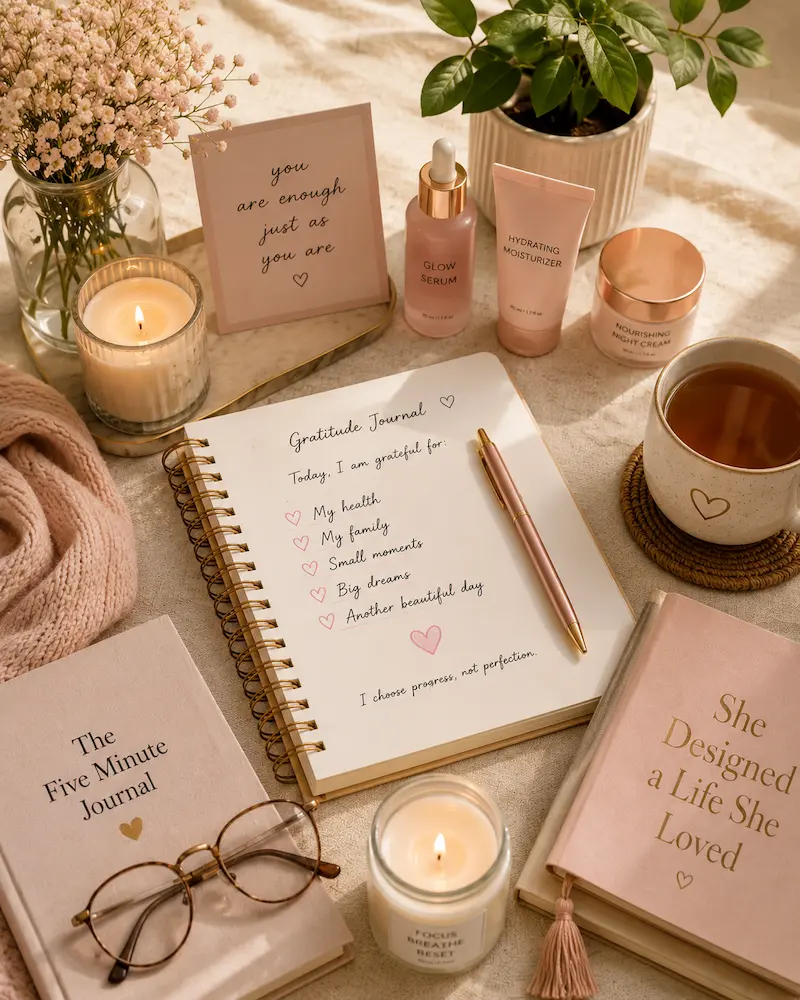 you
are enough
just as
you are
GLOW
SERUM
HYDRATING
MOISTURIZER
NOURISHING
NIGHT CREAM
Gratitude Journal
Today, I am grateful for:
My health
My family
Small moments
Big dreams
Another beautiful day
I choose progress, not perfection.
The
Five Minute
Journal
She
Designed
a Life She
Loved
FOCUS
BREATHE
RESET